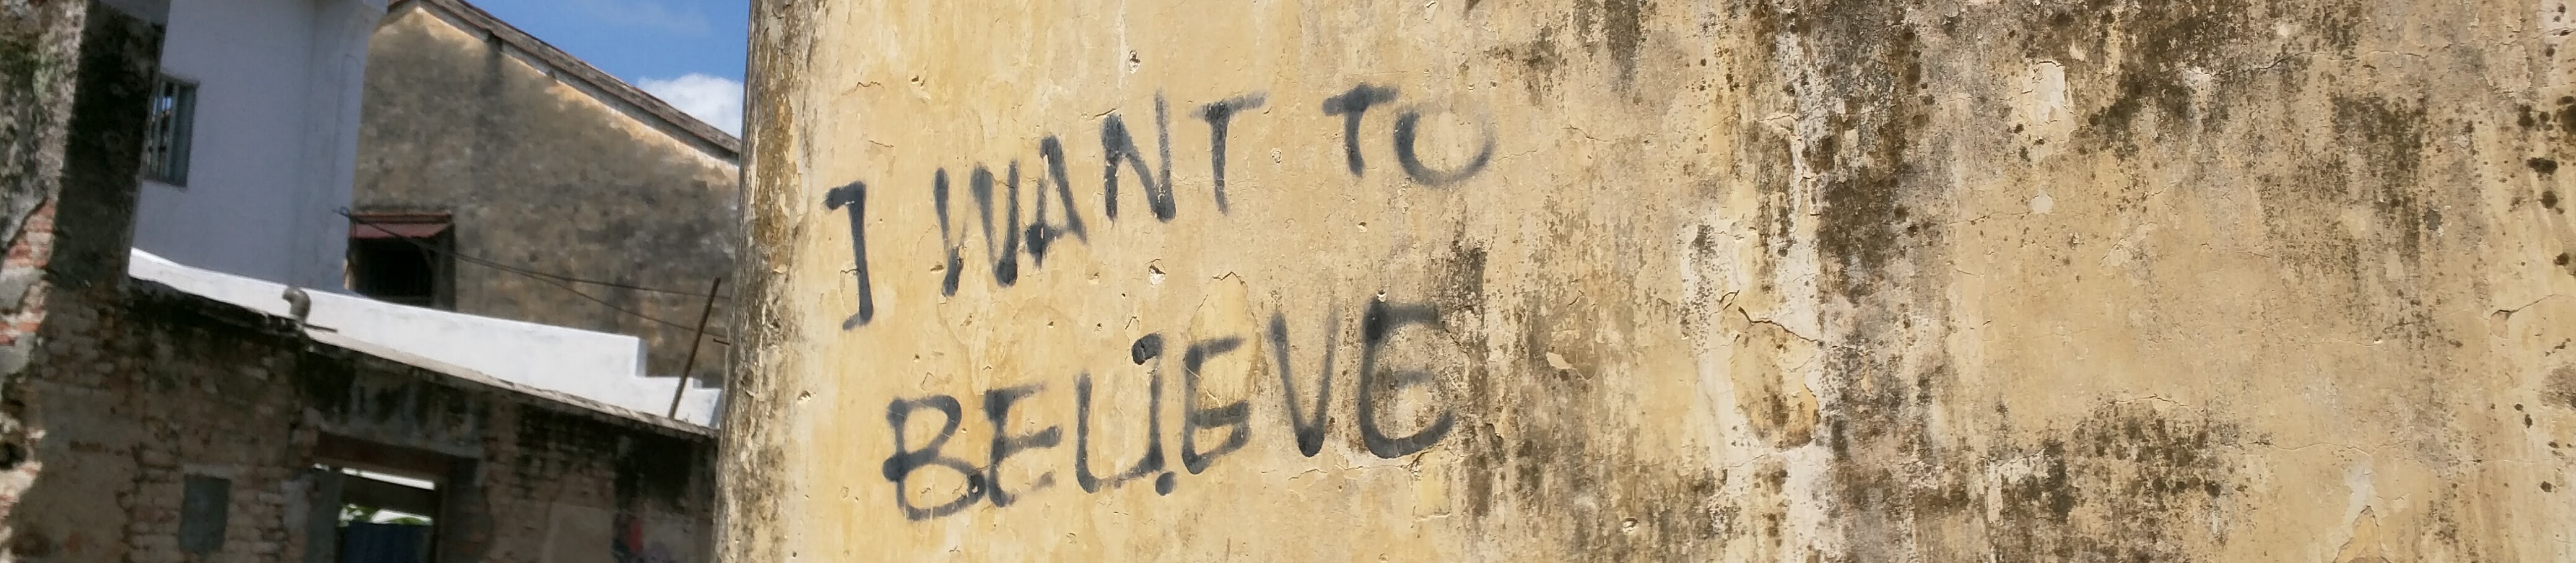 I WANT TO
BELIEVE